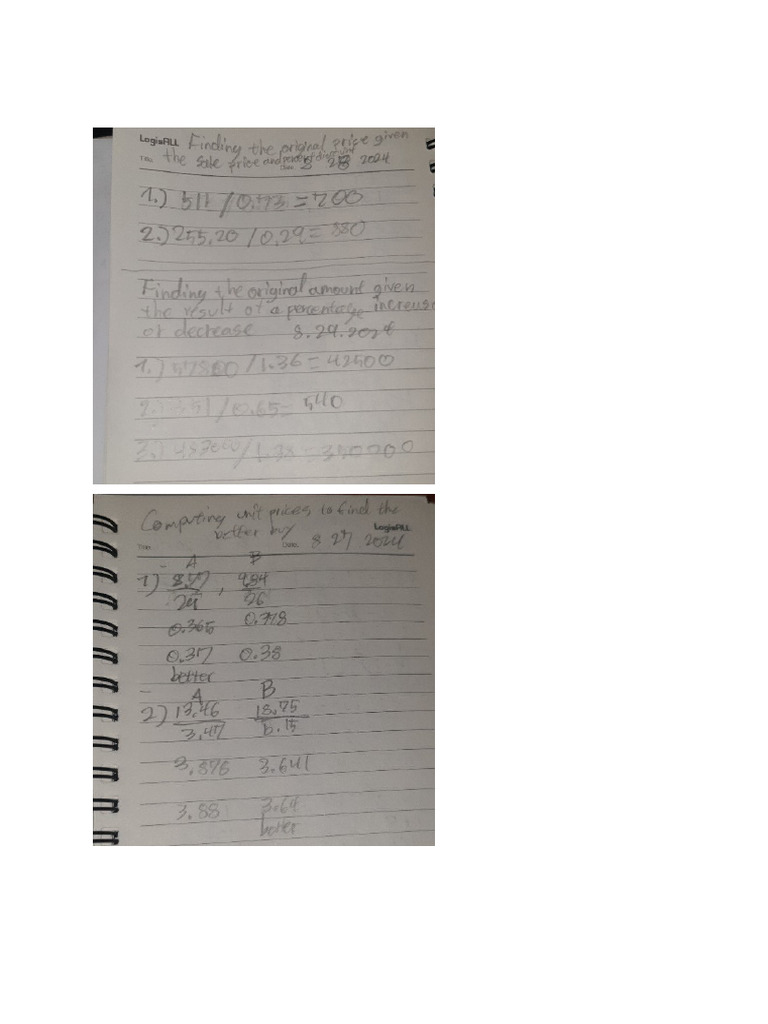 LogisALL Finding the original price given
Title. the sale price and percent discount Date. 8 28 2024
1.) 511 / 0.73 = 700
2.) 255.20 / 0.29 = 880
Finding the original amount given
the result of a percentage increase
or decrease 8.29.2024
1.) 57800 / 1.36 = 42500
2.) 351 / 0.65 = 540
3.) 483000 / 1.38 = 350000
Computing unit prices to find the
better buy LogisALL
Title. Date. 8 27 2024
A B
1) 8.77 , 9.84
24 26
0.365 0.378
0.37 0.38
better
A B
2) 13.46 18.75
3.47 5.15
3.876 3.641
3.88 3.64
better